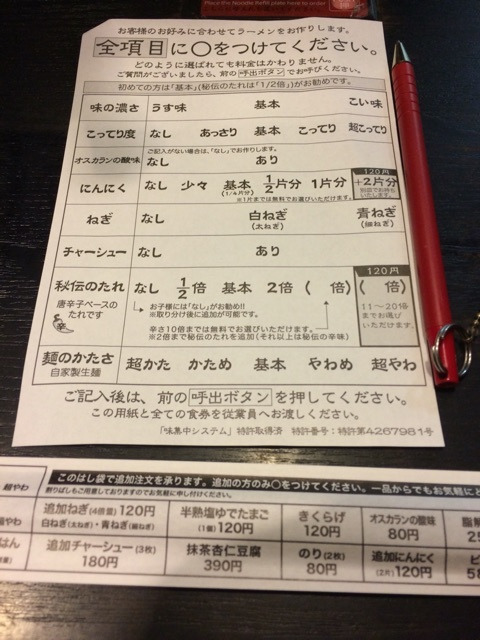 Place the favorite Refill plate here to order
お客様のお好みに合わせてラーメンをお作りします。
全項目に○をつけてください。
どのように選ばれても料金はかわりません。
ご質問がございましたら、前の呼出ボタンでお呼びください。
初めての方は「基本」(秘伝のたれは「1/2倍」)がお勧めです。
味の濃さ うす味 基本 こい味
こってり度 なし あっさり 基本 こってり 超こってり
ご記入がない場合は、「なし」でお作りします。
オスカランの酸味 なし あり
120円
にんにく なし 少々 基本 1/2片分 1片分 +2片分
(1/4片分)
※1片までは無料でお選びいただけます。
ねぎ なし 白ねぎ 青ねぎ
(太ねぎ) (細ねぎ)
チャーシュー なし あり
120円
秘伝のたれ なし 1/2倍 基本 2倍 ( 倍) ( 倍)
唐辛子ベースの
たれです
お子様には「なし」がお勧め!!
※取り分け後に追加が可能です。
11〜20倍
までお選び
いただけます。
辛さ10倍までは無料でお選びいただけます。
※2倍まで秘伝のたれを追加(それ以上は秘伝の辛味)
麺のかたさ 超かた かため 基本 やわめ 超やわ
自家製生麺
ご記入後は、前の呼出ボタンを押してください。
この用紙と全ての食券を従業員へお渡しください。
「味集中システム」特許取得済 特許番号:特許第4267981号
超やわ
このはし袋で追加注文を承ります。追加の方のみ○をつけてください。一品からでもお気軽に
割りばしもご用意しておりますのでお気軽に申し付けください。
追加ねぎ(4倍量)120円 半熟塩ゆでたまご きくらげ オスカランの酸味
白ねぎ(太ねぎ)・青ねぎ(細ねぎ) (1個)120円 120円 80円
追加チャーシュー(3枚) 抹茶杏仁豆腐 のり(2枚) 追加にんにく
180円 390円 80円 (2片)120円